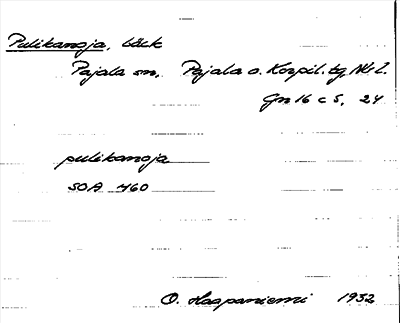 Pulikanoja, bäck
Pajala sn, Pajala o. Korpil. tg, Nb l.
Gn 16 c 5, 24
pulikanoja
SOA 460
O. Haapaniemi 1932